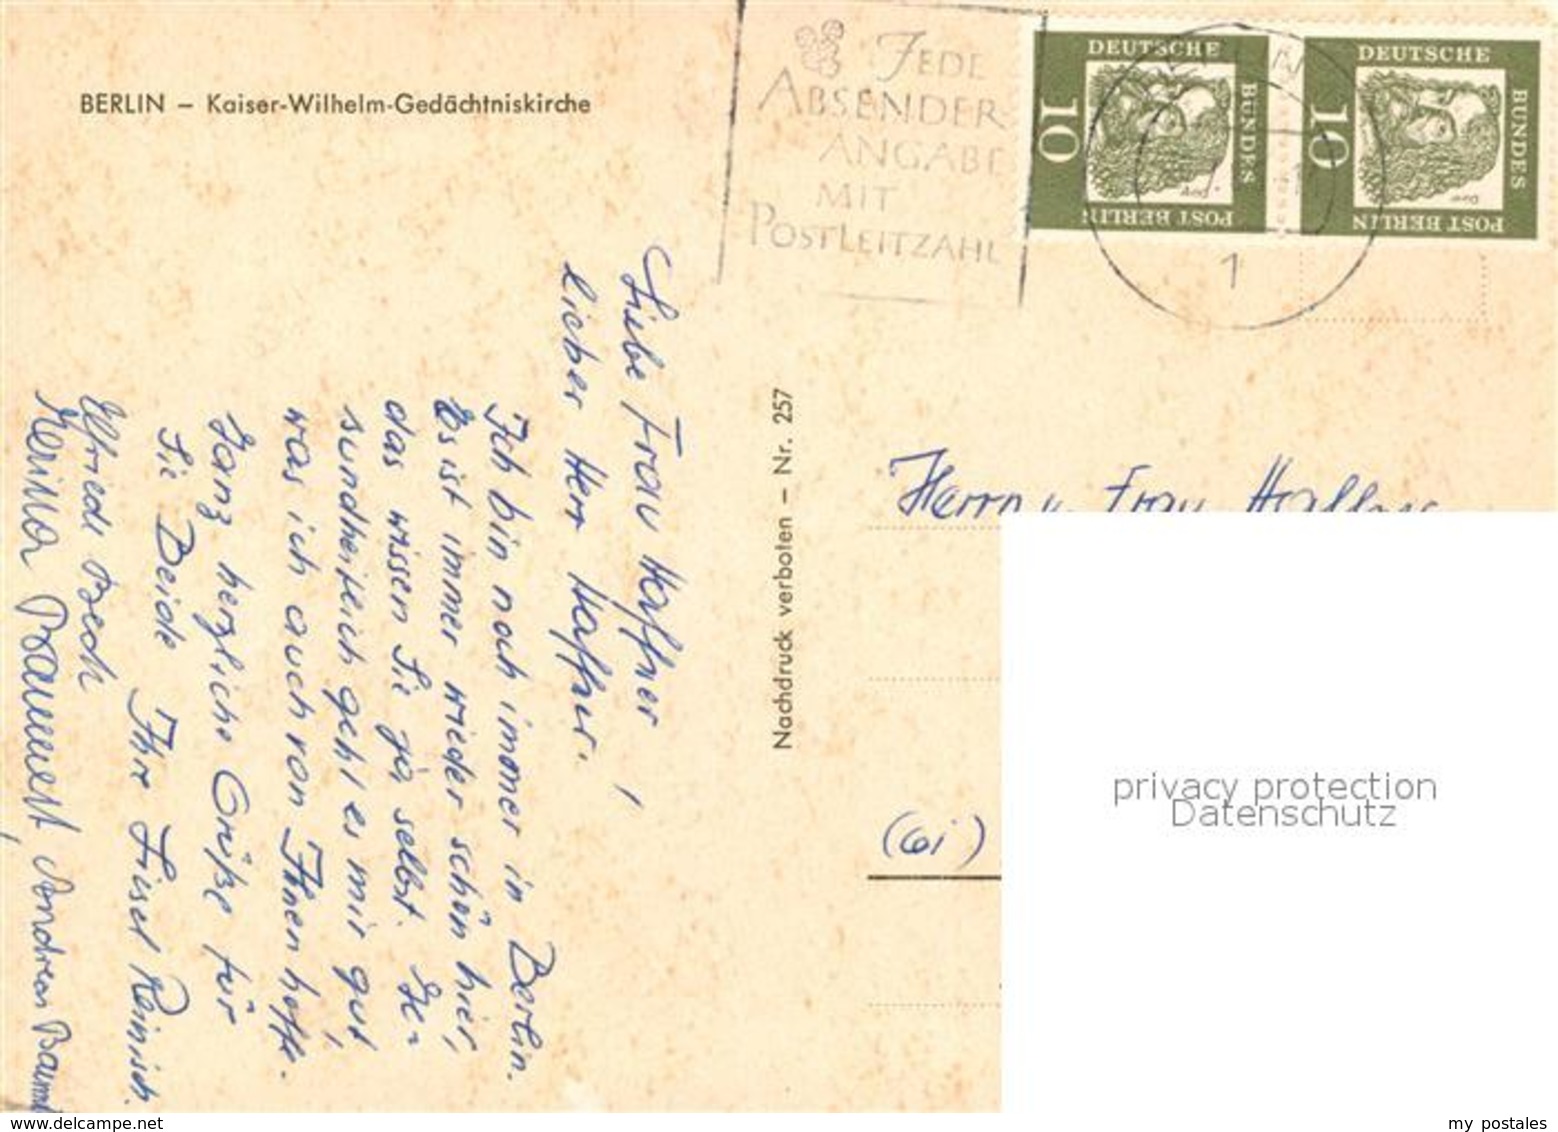 BERLIN – Kaiser-Wilhelm-Gedächtniskirche
JEDE
ABSENDER-
ANGABE
MIT
POSTLEITZAHL
DEUTSCHE
BUNDES
POST BERLIN
10
DEUTSCHE
BUNDES
POST BERLIN
10
1
Liebe Frau Haffner,
lieber Herr Haffner.
Ich bin noch immer in Berlin.
Es ist immer wieder schön hier,
das wissen Sie ja selbst. Ge-
sundheitlich geht es mir gut,
was ich auch von Ihnen hoffe.
Ganz herzliche Grüße für
Sie Beide Ihre Liesel Reinisch.
Elfriede Beck
Andreas
Nachdruck verboten – Nr. 257
Herrn u. Frau Haffner
privacy protection
Datenschutz
www.delcampe.net
my postales